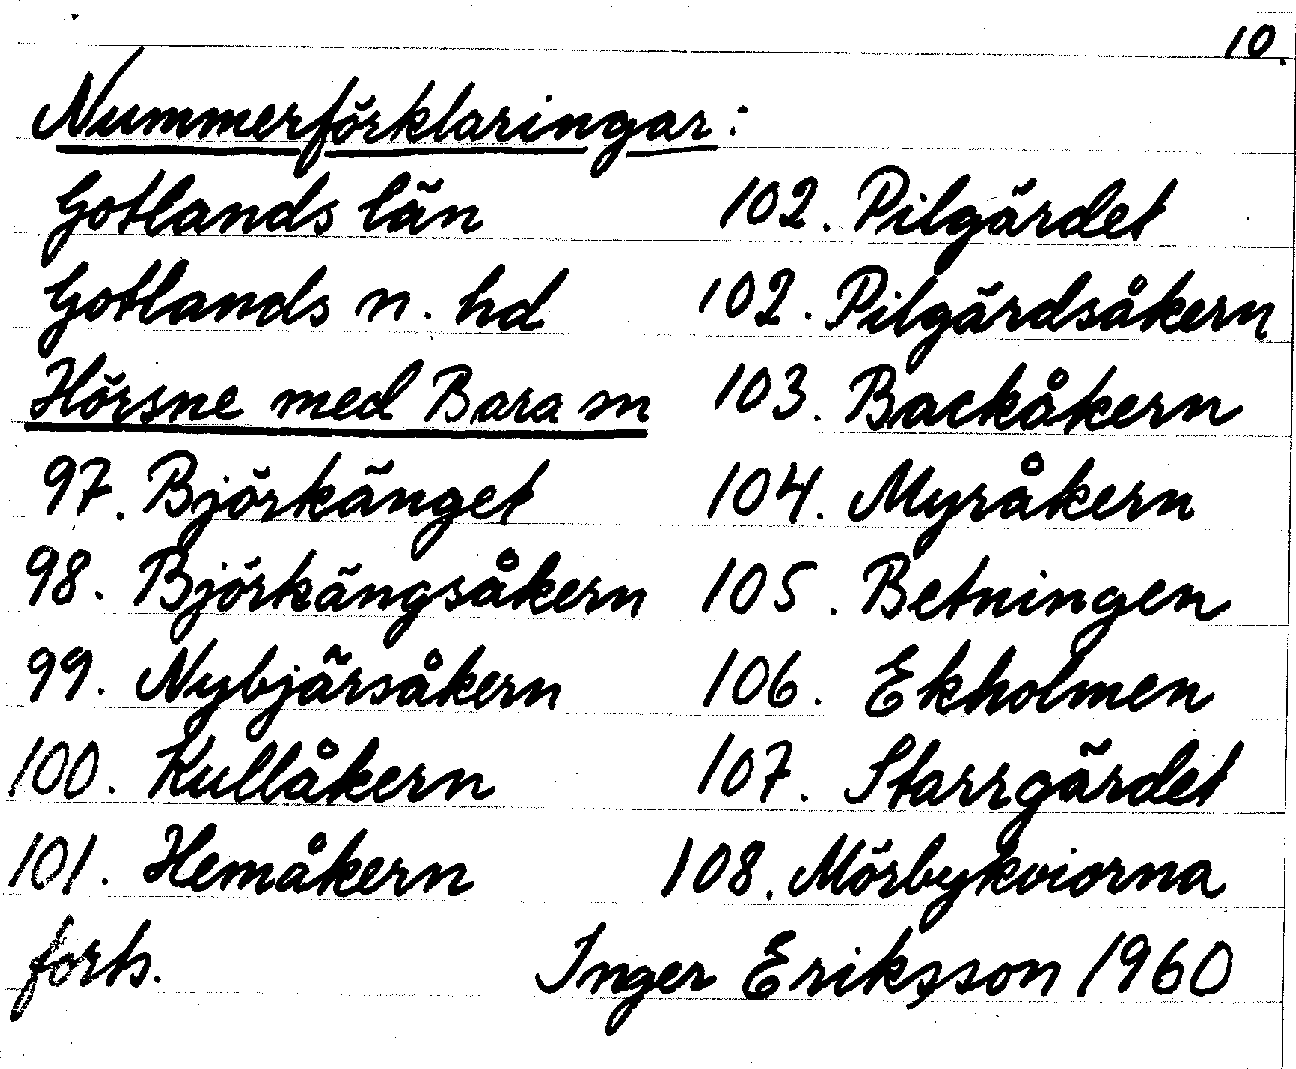 10.
Nummerförklaringar:
Gotlands län
Gotlands n. hd
Hörsne med Bara sn
97. Björkänget
98. Björkängsåkern
99. Nybjärsåkern
100. Kullåkern
101. Hemåkern
forts.
102. Pilgärdet
102. Pilgärdsåkern
103. Backåkern
104. Myråkern
105. Betningen
106. Ekholmen
107. Starrgärdet
108. Mörbykviorna
Inger Eriksson 1960